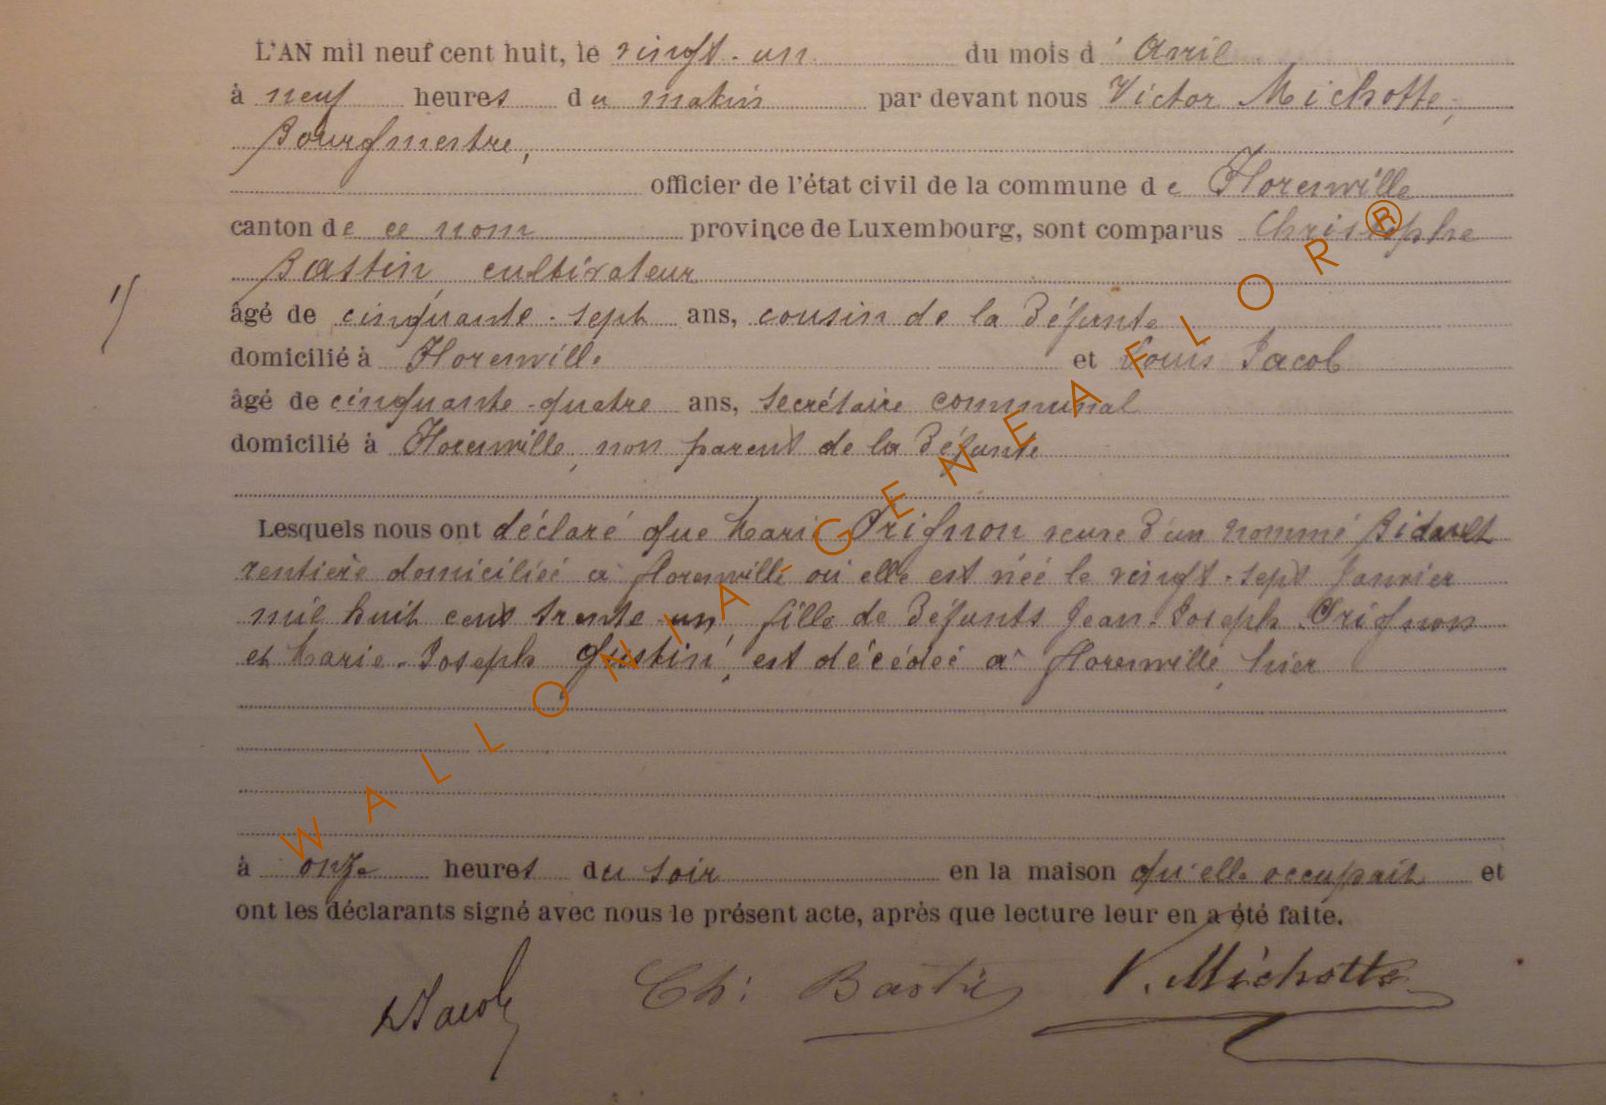 L'AN mil neuf cent huit, le vingt-un du mois d'Avril
à neuf heures du matin par devant nous Victor Michotte,
Bourgmestre,
officier de l'état civil de la commune de Florenville
canton de ce nom province de Luxembourg, sont comparus Christophe
Bastin, cultivateur
âgé de cinquante-sept ans, cousin de la Défunte
domicilié à Florenville et Louis Jacob
âgé de cinquante-quatre ans, secrétaire communal
domicilié à Florenville, non parent de la Défunte
Lesquels nous ont déclaré que Marie Orignon veuve d'un nommé Bidault
rentière domiciliée à Florenville où elle est née le vingt-sept Janvier
mil huit cent trente-un, fille de Défunts Jean-Joseph Orignon
et Marie-Joseph Gustin, est décédée à Florenville, hier
à onze heures du soir en la maison qu'elle occupait et
ont les déclarants signé avec nous le présent acte, après que lecture leur en a été faite.
LJacob Ch: Bastin V. Michotte
WALLONIA GENEAFLOR®